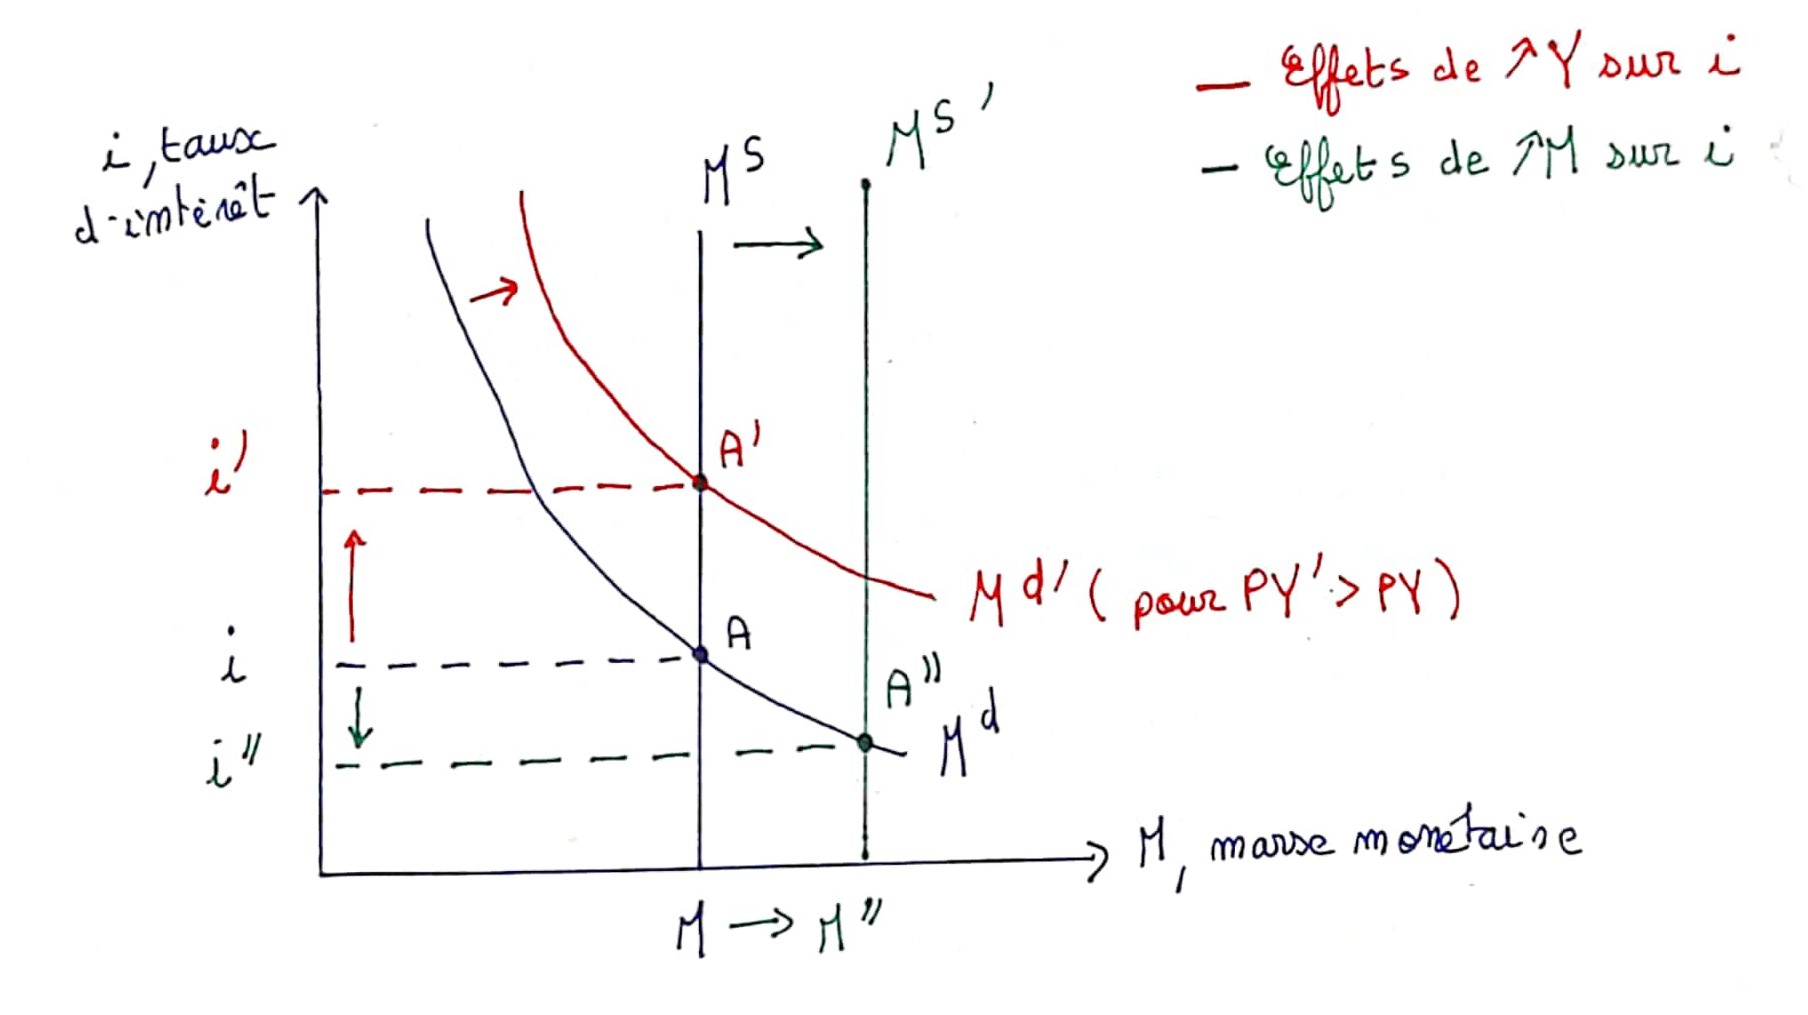 — Effets de ↗Y sur i
— Effets de ↗M sur i
i, taux
d'intérêt
M^S
M^S'
i'
A'
M^d' (pour PY' > PY)
i
A
A''
M^d
i''
M, masse monétaire
M → M''